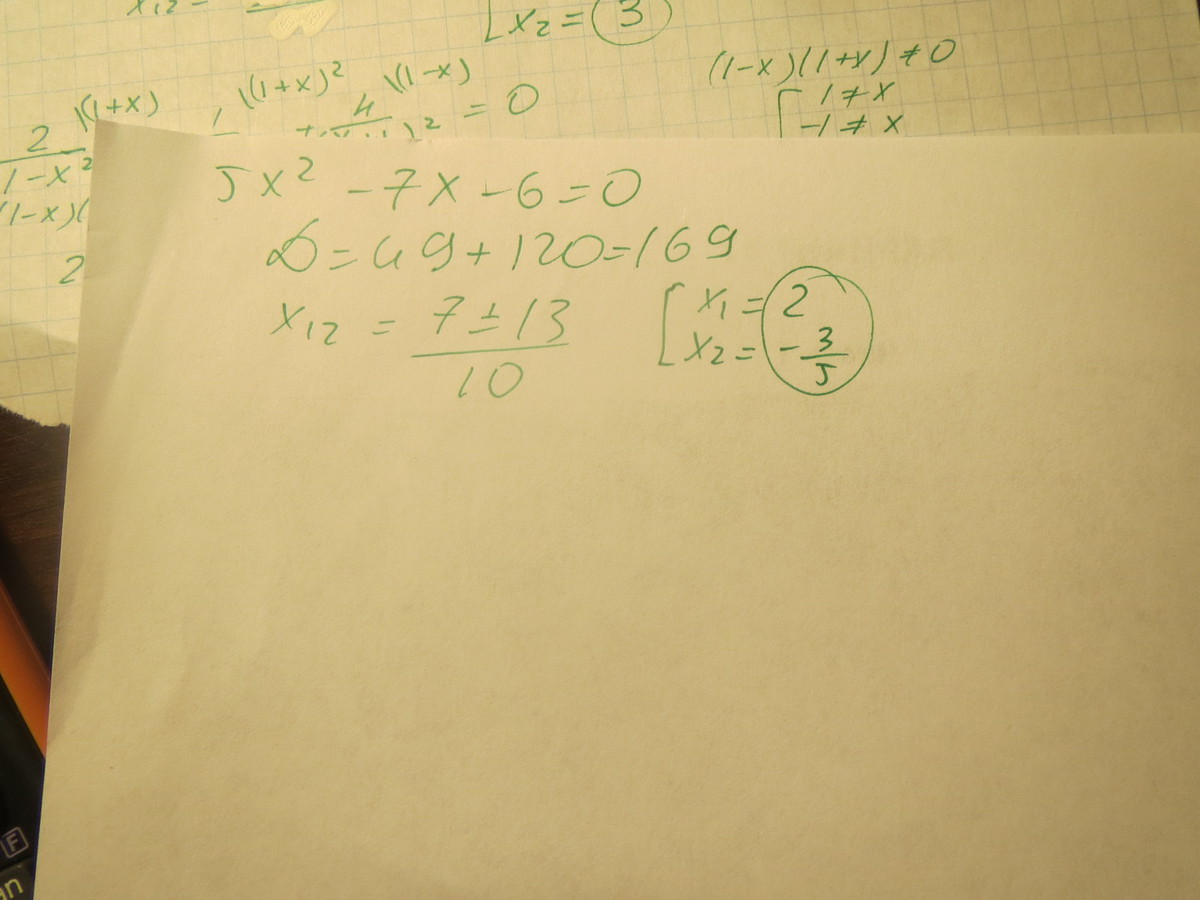 x₁₂ =
[x₂ = 3
(1-x)(1+x) ≠ 0
[1 ≠ x
-1 ≠ x
2 \(1+x) 1 \(1+x)² 4 \(1-x) = 0
1-x²
(1-x)(
2
5x² - 7x - 6 = 0
D = 49 + 120 = 169
x₁₂ = (7 ± 13)/10
[x₁ = 2
x₂ = -3/5
F